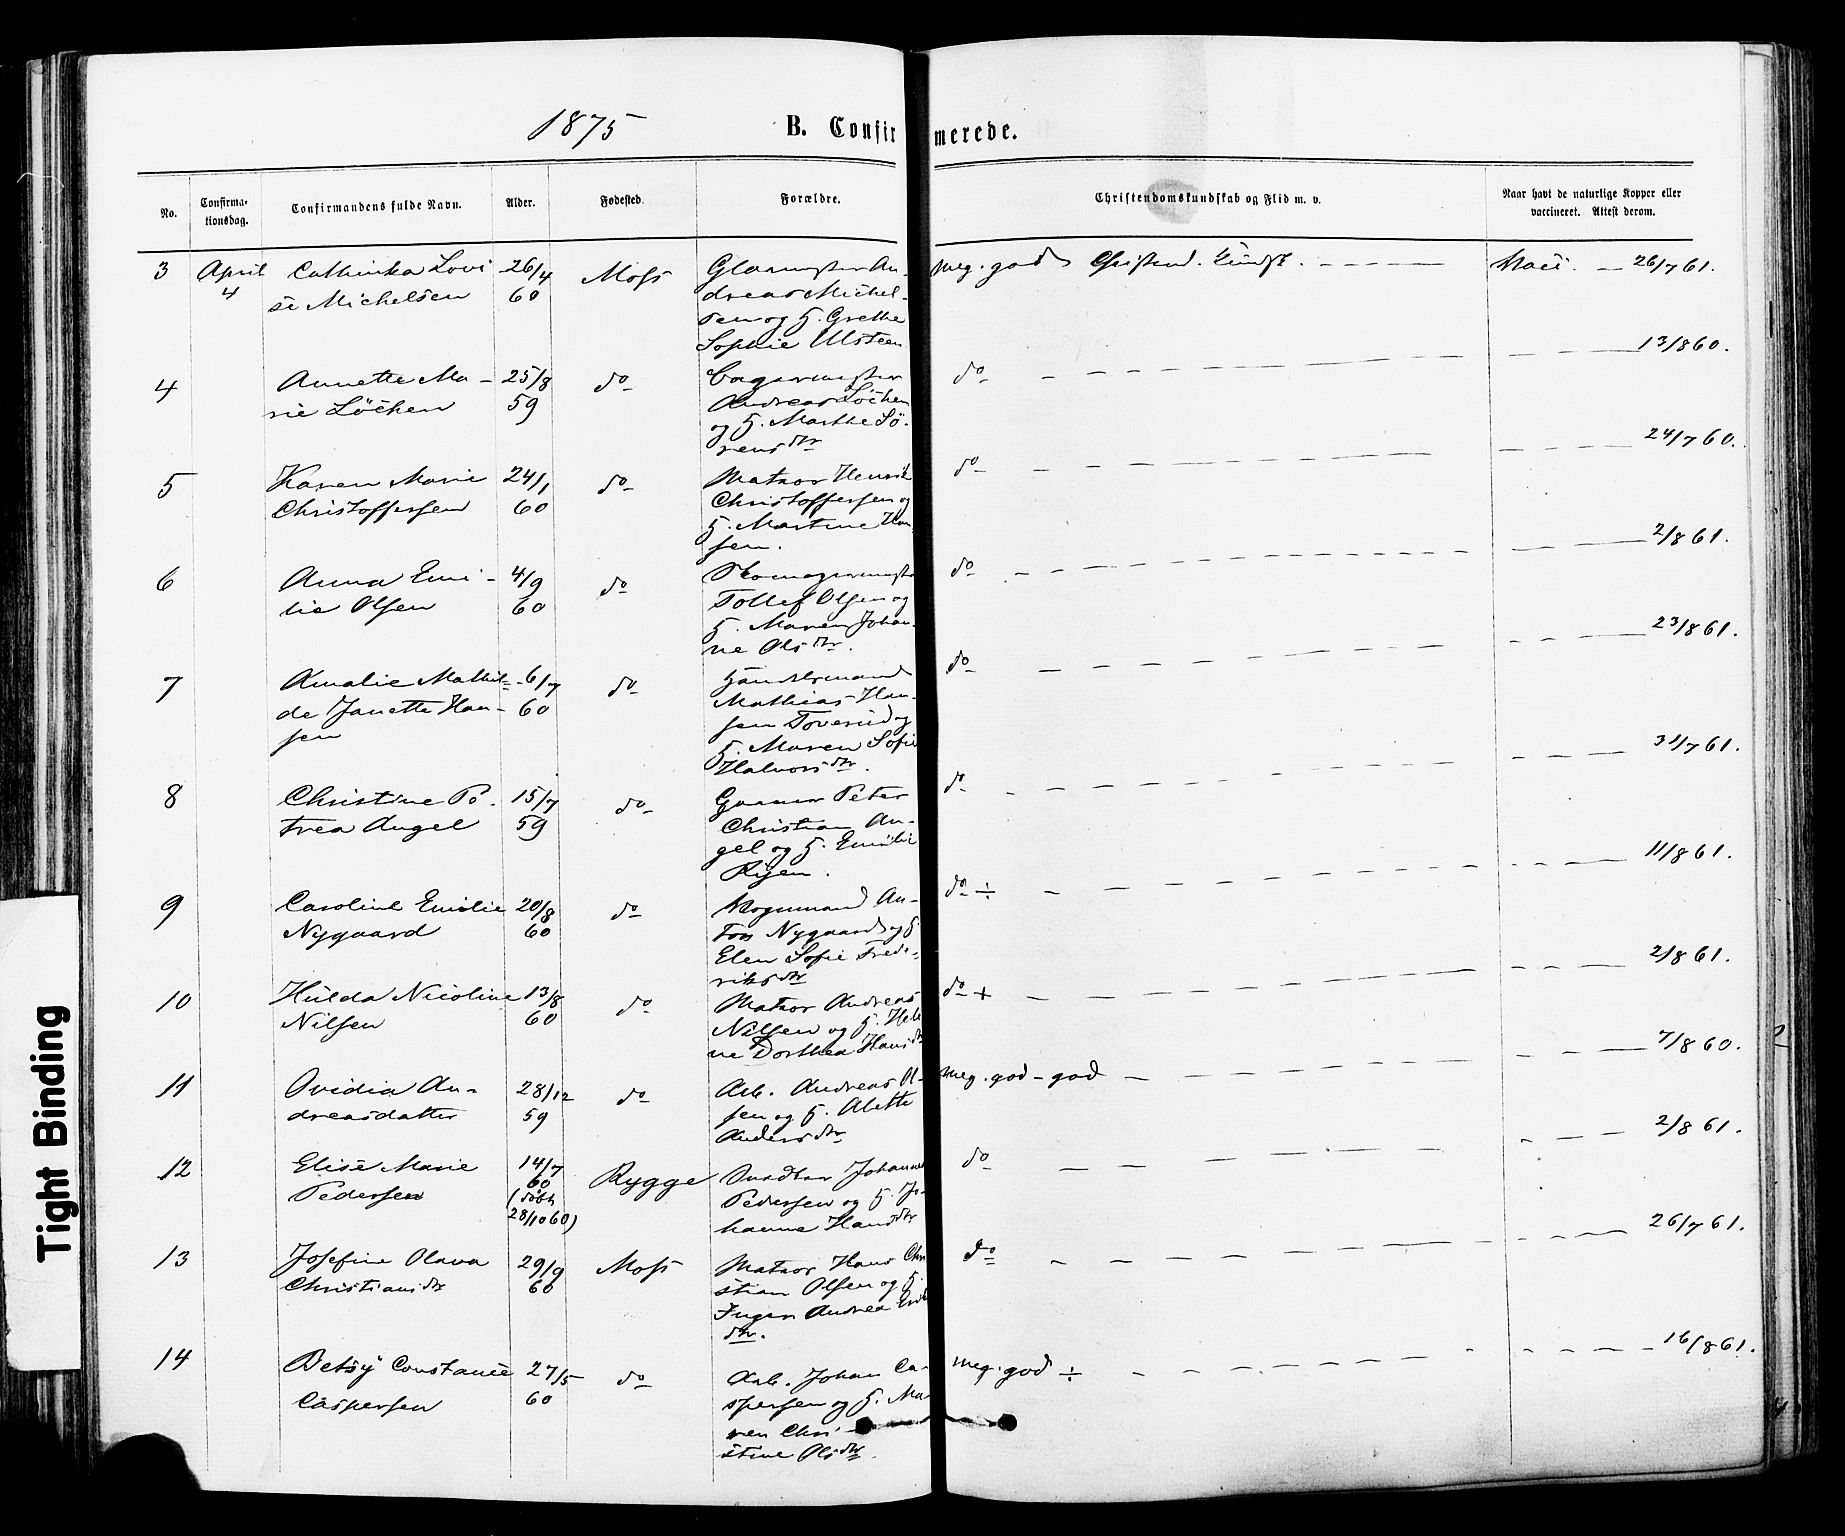 1875
B. Confirmerede.
No. Confirmationsdag. Confirmandens fulde Navn. Alder. Fødested. Forældre. Christendomskundskab og Flid m. v. Naar havt de naturlige Kopper eller vaccineret. Attest derom.
3 April 26/4 Moss meg. god Christend. Kundsk. 26/7 61.
4 Cathinka Lovi
se Michelsen 60
Andreas Michel-
sen og H. Grethe
Sophie Ulsteen
4 Annette Ma- 25/8 do do 13/8 60.
rie Löchen 59
Andreas Löchen
og H. Marthe Sö-
rensdtr
5 Karen Marie 24/1 do Matros Henrik do 24/7 60.
Christoffersen 60 Christoffersen og
H. Martine Han-
sen.
6 Anna Emi- 4/9 do do 2/8 61.
lie Olsen 60 Tollef Olsen og
H. Maren Johan-
ne Olsdtr.
7 Amalie Mathil- 6/7 do Handelsmand do 23/8 61.
de Janette Han- 60 Mathias Han-
sen sen Toverud og
H. Maren Sofie
Halvorsdtr.
8 Christine Pe- 15/7 do Peter do 31/7 61.
trea Angel 59 Christian An-
gel og H. Emilie
9 Caroline Emilie 20/8 do Vognmand An- do ÷ 11/8 61.
Nygaard 60 ton Nygaard og H.
Elen Sofie Fred-
riksdtr
10 Hulda Nicoline 13/8 do Matros Andreas do + 2/8 61.
Nilsen 60 Nilsen og H. Hele
ne Dorthea Hansdtr
11 Ovidia An- 28/12 do Arb. Andreas Ol- meg. god - god 7/8 60.
dreasdatter 59 sen og H. Alette
Andersdtr
12 Elise Marie 14/7 Rygge Johannes do 2/8 61.
Pedersen 60 Pedersen og H. Jo-
(döbt hanne Hansdtr
28/10 60)
13 Josefine Olava 29/9 Moss Matros Hans Chri do 26/7 61.
Christiansdtr 60 stian Olsen og H.
Inger Andrea
dtr.
14 Betsy Constance 27/5 do Arb. Johan Ca- meg. god ÷ 16/8 61.
Caspersen 60 spersen og H. Ma-
ren Chri-
stine Olsdtr.
Tight Binding